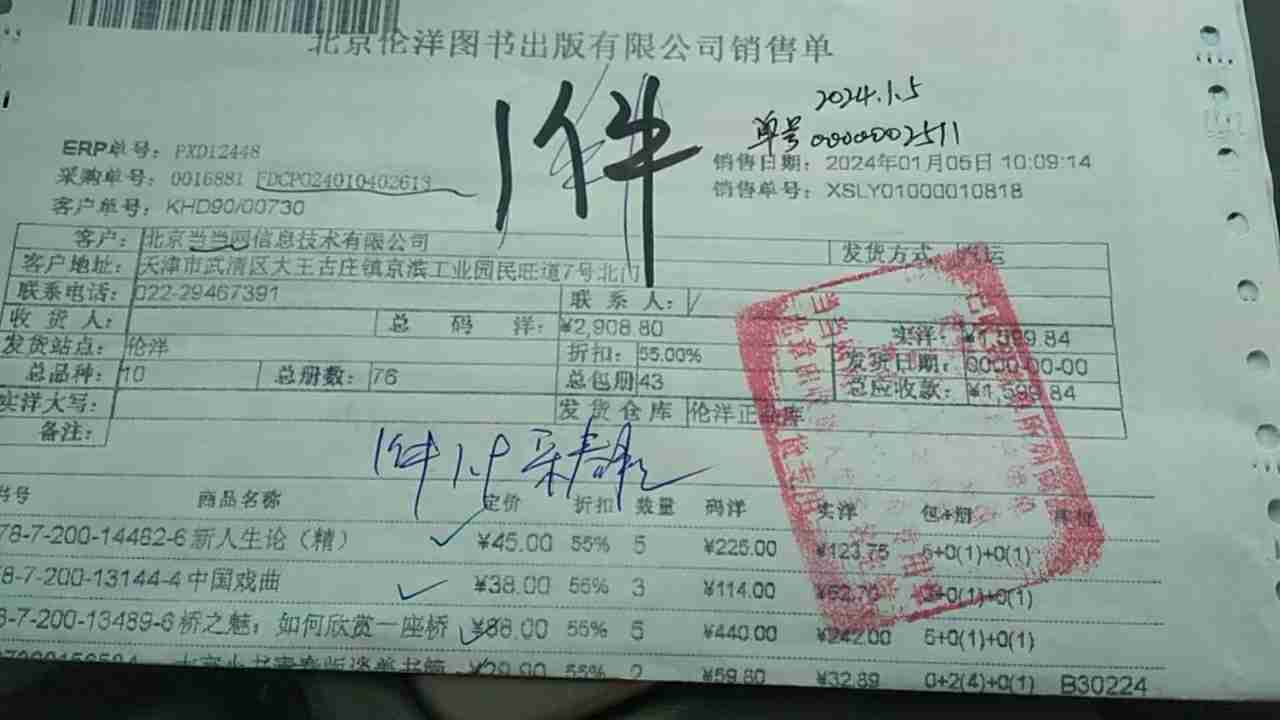 北京伦洋图书出版有限公司销售单
1件
2024.1.5
单号0000002511
ERP单号：PXD12448
销售日期：2024年01月05日 10:09:14
采购单号：0016881 FDCP024010402613
销售单号：XSLY01000010818
客户单号：KHD90/00730
客户：北京当当网信息技术有限公司 发货方式
客户地址：天津市武清区大王古庄镇京滨工业园民旺道7号北门
联系电话：022-29467391 联系人：/
收货人： 总码洋：¥2,908.80 实洋：¥1,599.84
发货站点：伦洋 折扣：55.00% 发货日期：0000-00-00
总品种：10 总册数：76 总包册43 总应收款：¥1,599.84
实洋大写： 发货仓库 伦洋正
备注：
1件 1.9
书号 商品名称 定价 折扣 数量 码洋 实洋 包+册
78-7-200-14462-6 新人生论（精） ¥45.00 55% 5 ¥225.00 ¥123.75 5+0(1)+0(1)
8-7-200-13144-4 中国戏曲 ¥38.00 55% 3 ¥114.00 ¥62.70 3+0(1)+0(1)
8-7-200-13489-6 桥之魅：如何欣赏一座桥 ¥88.00 55% 5 ¥440.00 ¥242.00 5+0(1)+0(1)
¥29.90 55% 2 ¥59.80 ¥32.89 0+2(4)+0(1) B30224